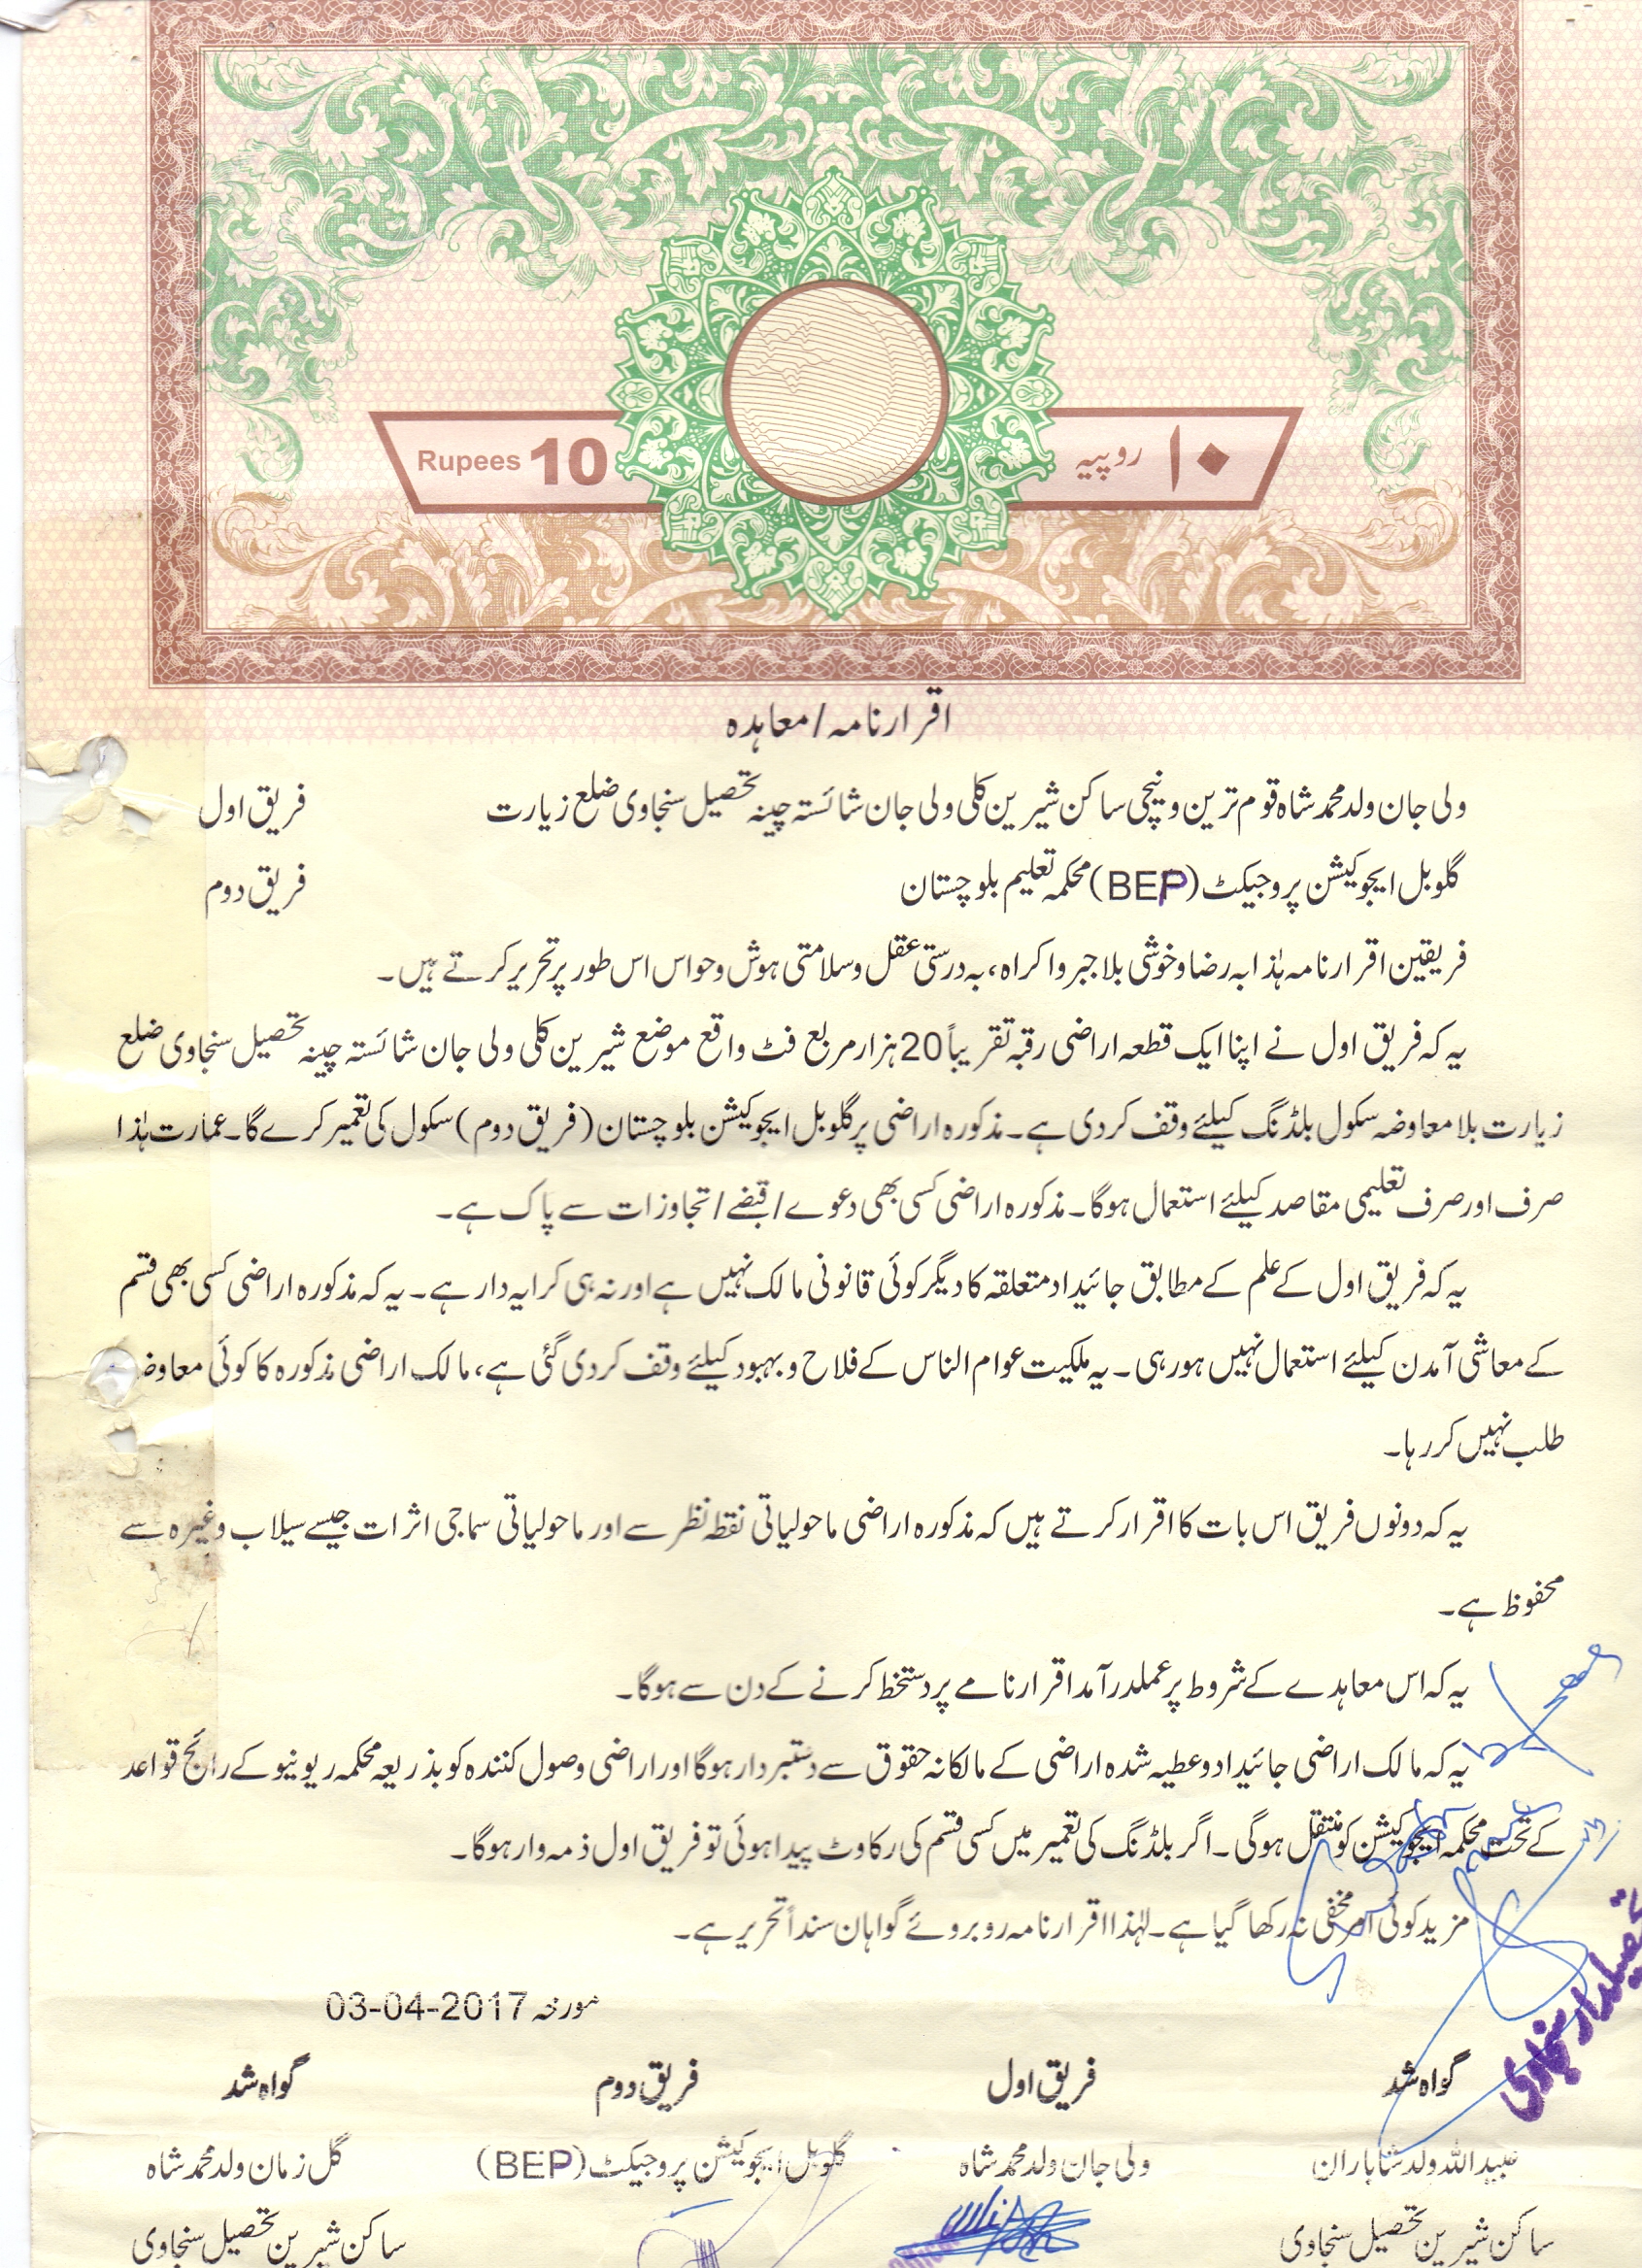 Rupees 10
۱۰ روپیہ
اقرارنامہ/معاہدہ
ولی جان ولد محمد شاہ قوم ترین ونیچی ساکن شیرین کلی ولی جان شائستہ چینہ تحصیل سنجاوی ضلع زیارت فریق اول
گلوبل ایجوکیشن پروجیکٹ (BEP) محکمہ تعلیم بلوچستان فریق دوم
فریقین اقرارنامہ ہٰذا بہ رضا و خوشی بلا جبر و اکراہ، بہ درستی عقل و سلامتی ہوش و حواس اس طور پر تحریر کرتے ہیں۔
یہ کہ فریق اول نے اپنا ایک قطعہ اراضی رقبہ تقریباً 20 ہزار مربع فٹ واقع موضع شیرین کلی ولی جان شائستہ چینہ تحصیل سنجاوی ضلع
زیارت بلا معاوضہ سکول بلڈنگ کیلئے وقف کردی ہے۔ مذکورہ اراضی پر گلوبل ایجوکیشن بلوچستان (فریق دوم) سکول کی تعمیر کرے گا۔ عمارت ہٰذا
صرف اور صرف تعلیمی مقاصد کیلئے استعمال ہوگا۔ مذکورہ اراضی کسی بھی دعوے/قبضے/تجاوزات سے پاک ہے۔
یہ کہ فریق اول کے علم کے مطابق جائیداد متعلقہ کا دیگر کوئی قانونی مالک نہیں ہے اور نہ ہی کرایہ دار ہے۔ یہ کہ مذکورہ اراضی کسی بھی قسم
کے معاشی آمدن کیلئے استعمال نہیں ہورہی۔ یہ ملکیت عوام الناس کے فلاح و بہبود کیلئے وقف کردی گئی ہے، مالک اراضی مذکورہ کا کوئی معاوضہ
طلب نہیں کررہا۔
یہ کہ دونوں فریق اس بات کا اقرار کرتے ہیں کہ مذکورہ اراضی ماحولیاتی نقطہ نظر سے اور ماحولیاتی سماجی اثرات جیسے سیلاب وغیرہ سے
محفوظ ہے۔
یہ کہ اس معاہدے کے شروط پر عملدرآمد اقرارنامے پر دستخط کرنے کے دن سے ہوگا۔
یہ کہ مالک اراضی جائیداد و عطیہ شدہ اراضی کے مالکانہ حقوق سے دستبردار ہوگا اور اراضی وصول کنندہ کو بذریعہ محکمہ ریونیو کے رائج قواعد
کے تحت محکمہ ایجوکیشن کو منتقل ہوگی۔ اگر بلڈنگ کی تعمیر میں کسی قسم کی رکاوٹ پیدا ہوئی تو فریق اول ذمہ وار ہوگا۔
مزید کوئی امر مخفی نہ رکھا گیا ہے۔ لہٰذا اقرارنامہ روبروئے گواہان سنداً تحریر ہے۔
مورخہ 03-04-2017
تحصیلدار سنجاوی
گواہ شد فریق اول فریق دوم گواہ شد
عبیداللہ ولد شاباران ولی جان ولد محمد شاہ گلوبل ایجوکیشن پروجیکٹ (BEP) گل زمان ولد محمد شاہ
ساکن شیرین تحصیل سنجاوی ساکن شیرین تحصیل سنجاوی